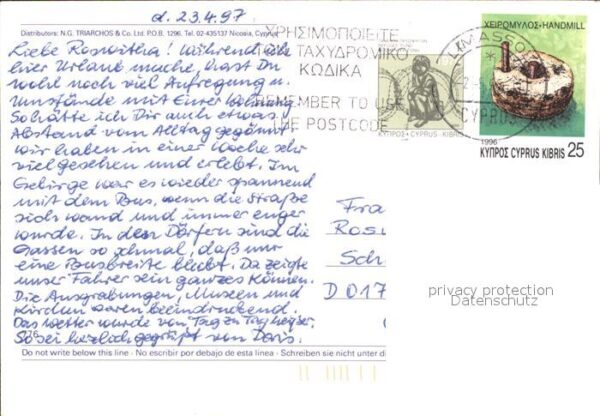 d. 23.4.97
Distributors: N.G. TRIARCHOS & Co. Ltd. P.O.B. 1296. Tel. 02-435137 Nicosia, Cyprus
Liebe Roswitha! Während ich
hier Urlaub mache, hast Du
wohl noch viel Aufregung u.
Umstände mit Eurer Wohnung.
So hätte ich Dir auch etwas
Abstand vom Alltag gegönnt.
Wir haben in einer Woche sehr
viel gesehen und erlebt. Im
Gebirge war es wieder spannend
mit dem Bus, wenn die Straße
sich wand und immer enger
wurde. In den Dörfern sind die
Gassen so schmal, daß nur
eine Busbreite bleibt. Da zeigte
unser Fahrer sein ganzes Können.
Die Ausgrabungen, Museen und
Kirchen waren beeindruckend.
Das Wetter wurde von Tag zu Tag heißer.
So sei herzlich gegrüßt von Doris.
76
Do not write below this line - No escribir por debajo de esta línea - Schreiben sie nicht unter di
ΧΡΗΣΙΜΟΠΟΙΕΙΤΕ
ΤΟΝ ΤΑΧΥΔΡΟΜΙΚΟ
ΚΩΔΙΚΑ
REMEMBER TO USE
THE POSTCODE
ΚΥΠΡΟΣ CYPRUS KIBRIS
LIMASSOL
CYPRUS
ΧΕΙΡΟΜΥΛΟΣ • HANDMILL
1996
ΚΥΠΡΟΣ CYPRUS KIBRIS 25
Fra
Ros
Sch
D 017
privacy protection
Datenschutz